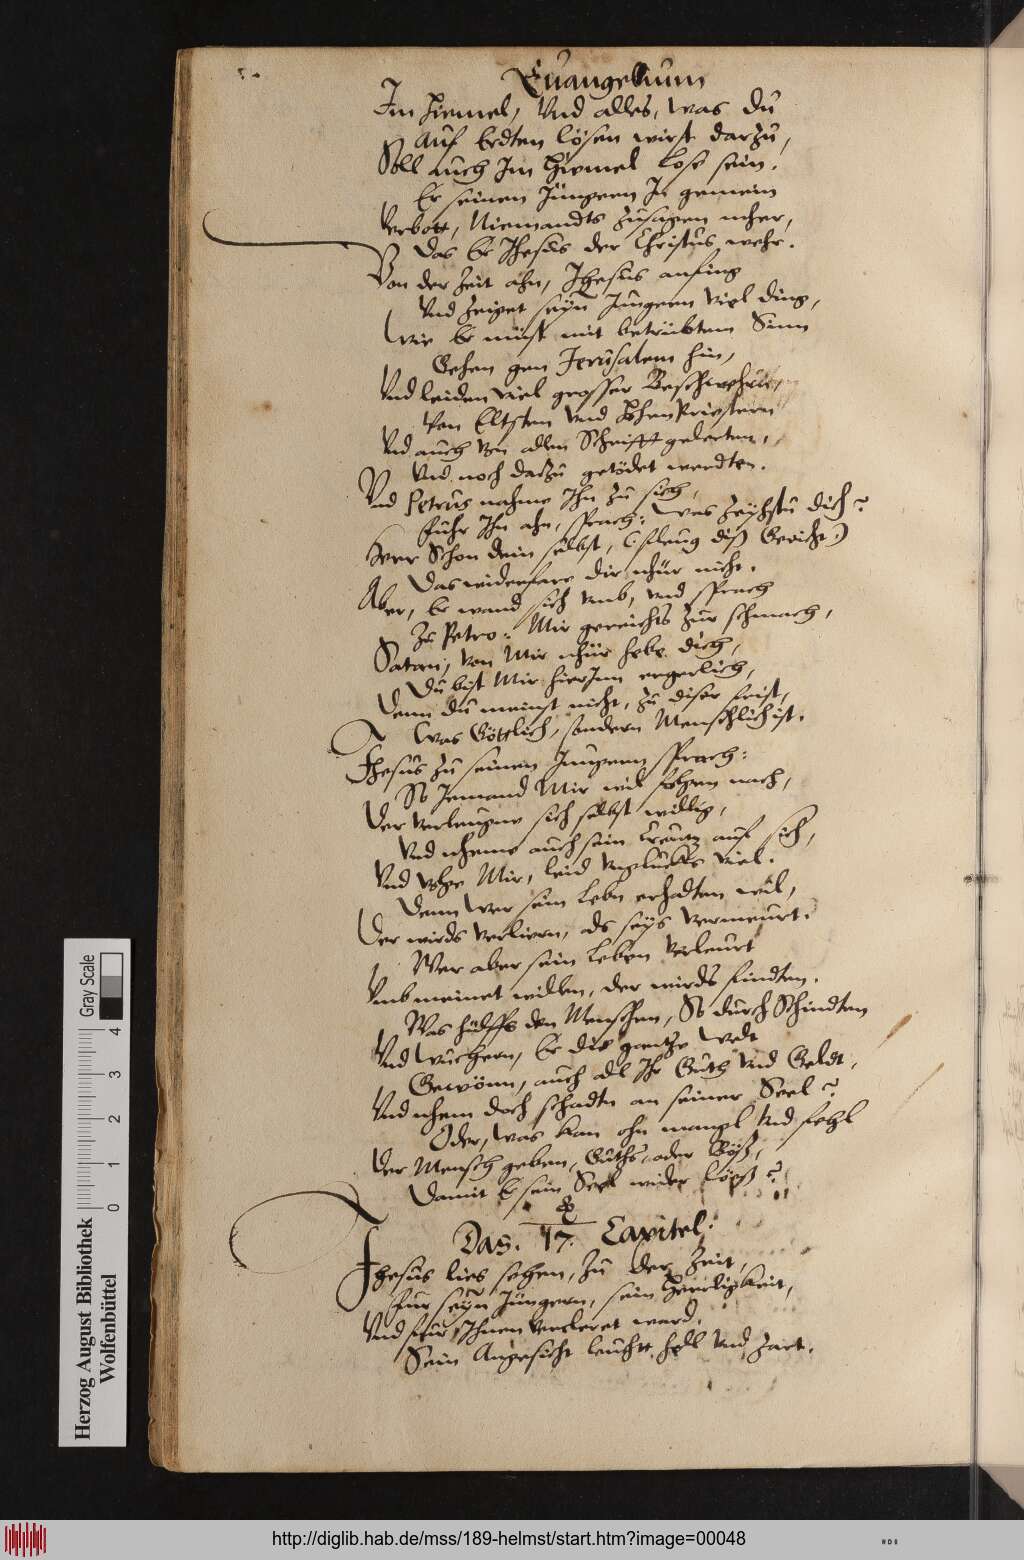 Euangelium
Im Himel, Vnd alles, was du
Auf Erdten lösen wirst darzu,
Soll auch Im Himel Lose sein.
Er seinen Jüngern In gemein
Verbott, Niemandts zusagen mher,
Das Er Jhesus der Christus wehr.
Von der Zeit ahn, Jhesus anfing
Vnd zeiget seyn Jungern viel ding,
Wie Er müst mit betrübtem Sinn
Gehen gen Jerusalem hin,
Vnd leiden viel grosser Beschwehrn,
Von Eltsten Vnd HohenPriestern
Vnd auch Von allen Schrifftgelerten,
Vnd noch dazu getödet werdten.
Vnd Petrus nahme Ihn zu sich,
Fuhr Ihn ahn, sprach: Was zeyhstu dich?
Herr Schon dein selbst, (fleug diß Gericht)
Das widerfare dir nhur nicht.
Aber, Er wand sich vmb, vnd sprach
Zu Petro: Mir gereichts zur schmach,
Satan, Von Mir nhur hebe dich,
Du bist Mir hierInn ergerlich,
Denn du meinst nicht, zu diser frist,
Was Göttlich, sondern Menschlich ist.
Jhesus zu seinen Jungern sprach:
So Jemand Mir wil folgen nach,
Der verleugne sich selbst willig,
Vnd nheme auch sein Creutz auf sich,
Vnd Volge Mir, leid Vnglücks viel.
Denn Wer sein Lebn erhalten wil,
Der wirds verliern, als seys vermeurt.
Wer aber sein Leben Verleurt
Vmb meinet willen, der wirds findten.
Was hülffs den Menschen, So durch Schindten
Vnd Wuchern, Er die gantze Welt
Gewönn, auch all Ihr Guth Vnd Geldt,
Vnd nhem doch schadtn an seiner Seel?
Oder, Was kan ohn mangl Vnd fehl
Der Mensch geben, Guths, oder Böß,
Damit Er sein Seel wider löeß?
Das. 17. Capitel.
Jhesus lies sehen, zu der Zeit,
Fur seyn Jüngern, sein Herrligkeit,
Vnd fur Ihnen Verkleret ward.
Sein Angesicht leucht hell Vnd zart.
Gray Scale
4
3
2
1
0
Herzog August Bibliothek
Wolfenbüttel
http://diglib.hab.de/mss/189-helmst/start.htm?image=00048